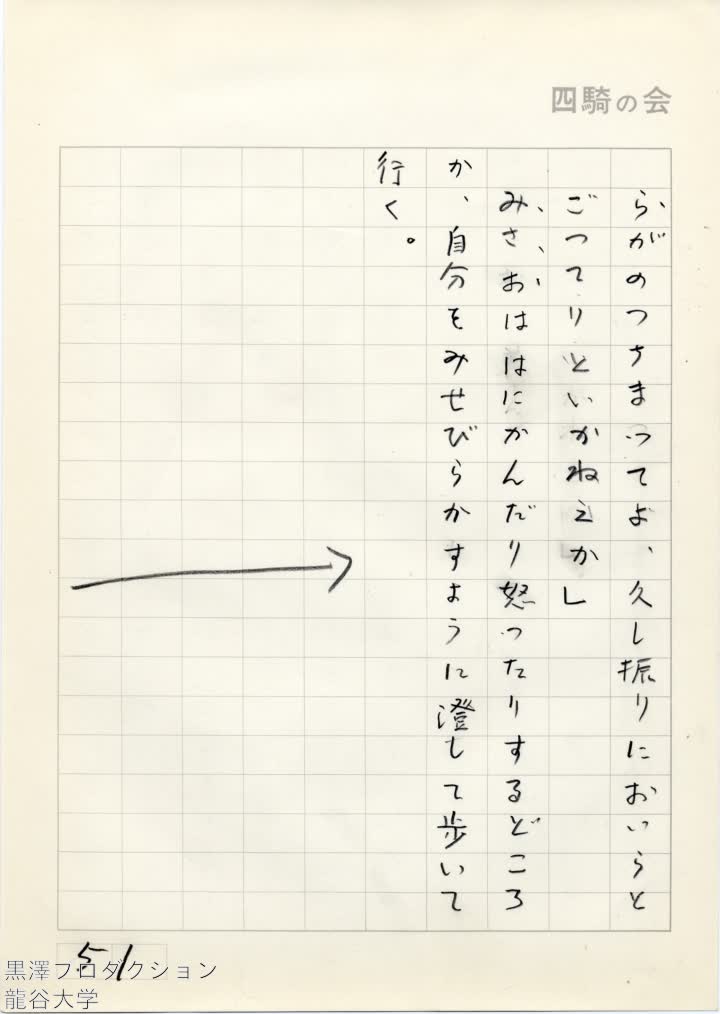 四騎の会
らがのつちまつてよ、久し振りにおいらと
ごつてりといかねえか」
みさおははにかんだり怒つたりするどころ
か、自分をみせびらかすように澄して歩いて
行く。
51
黒澤プロダクション
龍谷大学